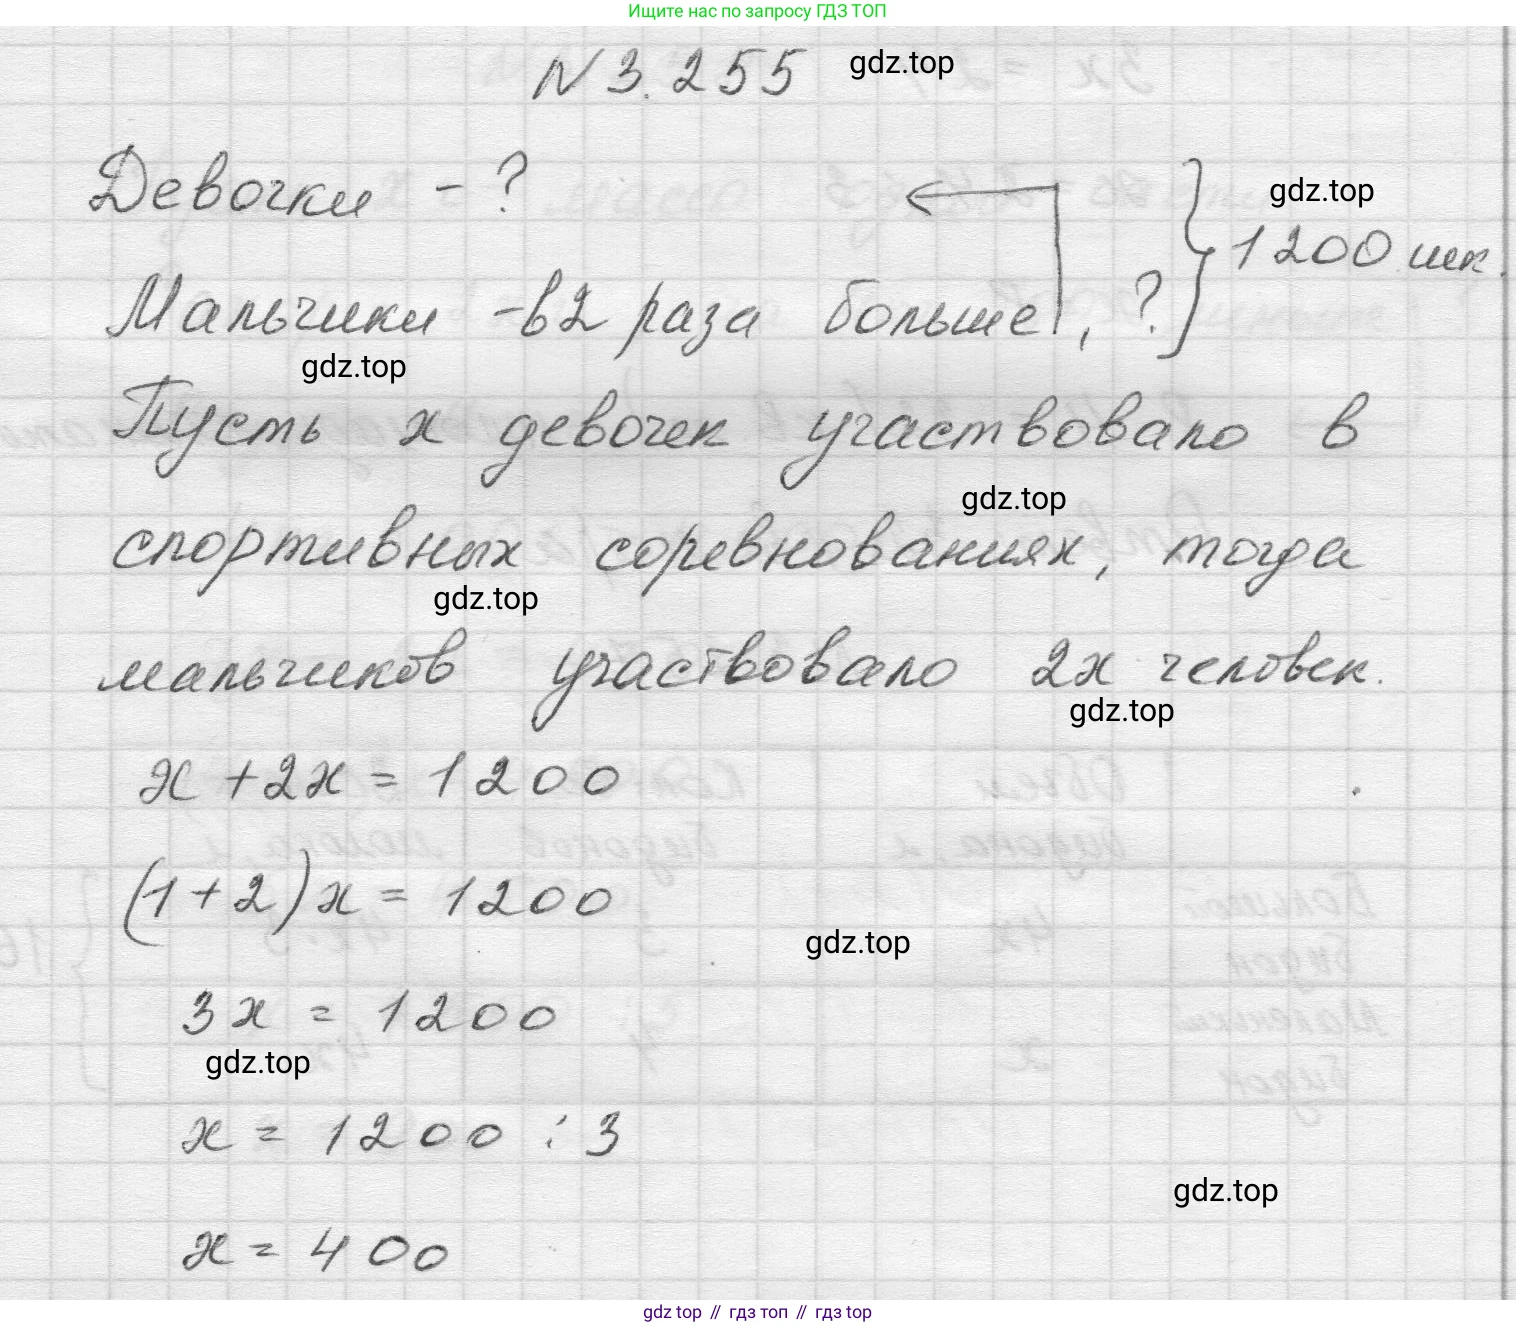 Ищите нас по запросу ГДЗ ТОП
N 3.255
gdz.top
Девочки - ?
gdz.top
1200 шк.
Мальчики - в 2 раза больше, ?
gdz.top
Пусть х девочек участвовало в
gdz.top
спортивных соревнованиях, тогда
gdz.top
мальчиков участвовало 2х человек.
gdz.top
х + 2х = 1200
(1 + 2) х = 1200
gdz.top
3х = 1200
gdz.top
х = 1200 : 3
gdz.top
х = 400
gdz top // гдз топ // гдз top